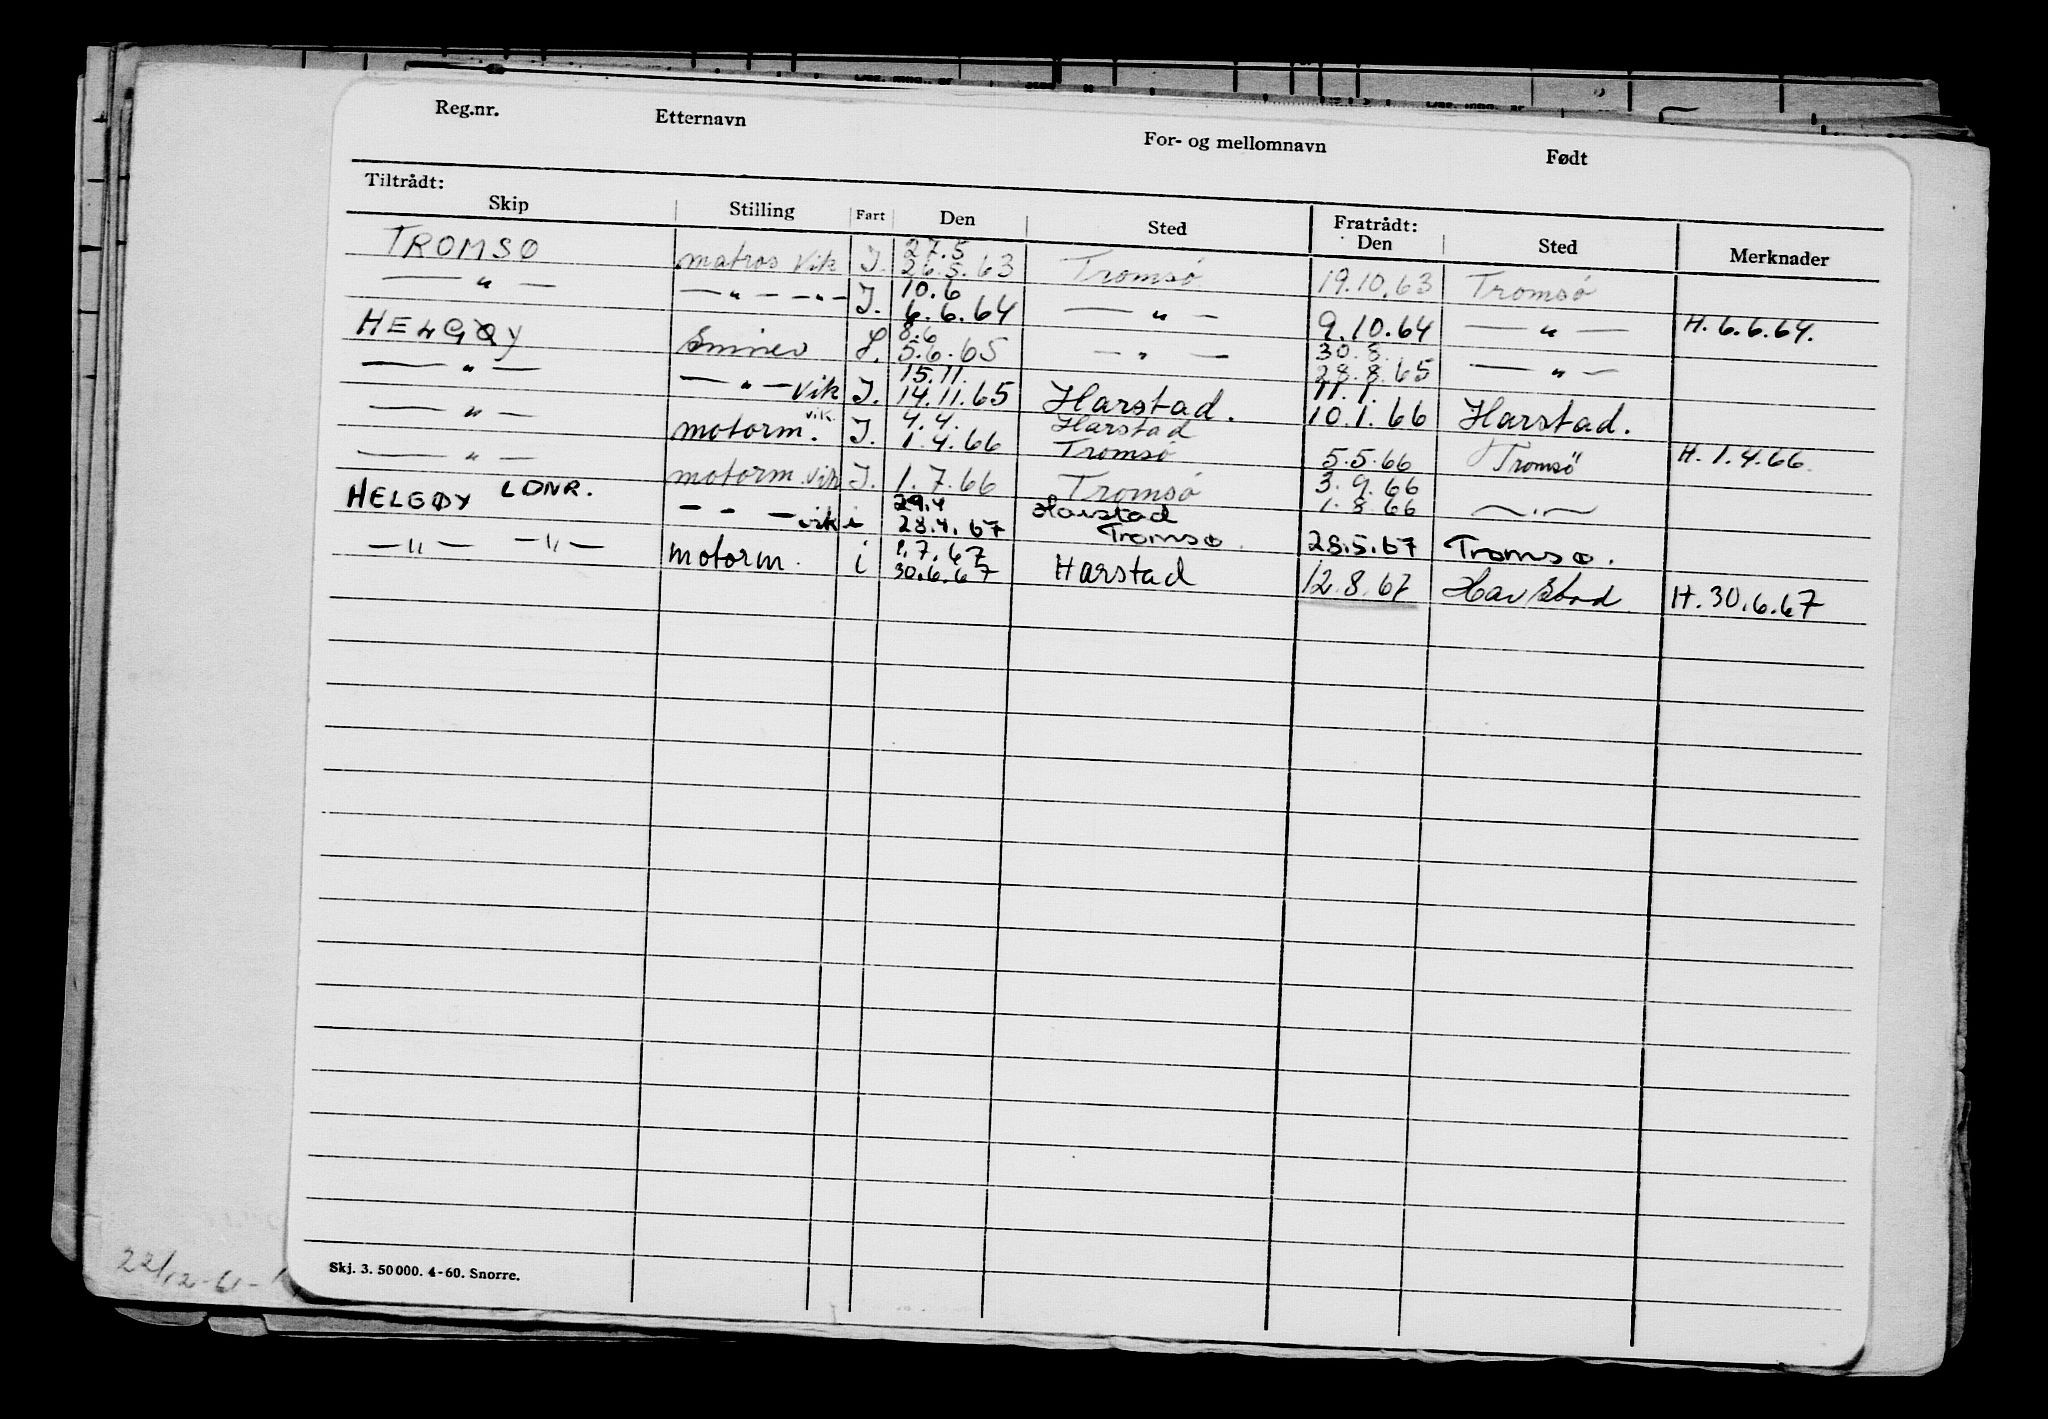 Reg.nr. Etternavn For- og mellomnavn Født
Tiltrådt: Fratrådt:
Skip Stilling Fart Den Sted Den Sted Merknader
27.5
TROMSØ matros vik J. 26.5.63 Tromsø 19.10.63 Tromsø
10.6
— " — — " — — " — J. 6.6.64 — " — 9.10.64 — " — H. 6.6.64.
8.6 30.8.
HELGØY 5.6.65 — " — 28.8.65 — " —
15.11. 11.1.
— " — — " — vik J. 14.11.65 Harstad. 10.1.66 Harstad.
vik. 4.4. Harstad
— " — motorm. J. 1.4.66 Tromsø 5.5.66 Tromsö H. 1.4.66.
3.9.66
— " — motorm. vik J. 1.7.66 Tromsø 1.8.66 — " —
29.4 Harstad
HELGØY LDNR. - - - vik i 28.4.67 Tromsø. 28.5.67 Tromsø.
1.7.67
— " — — " — motorm. i 30.6.67 Harstad 12.8.67 Harstad H. 30.6.67
Skj. 3. 50000. 4-60. Snorre.
22/12-61-